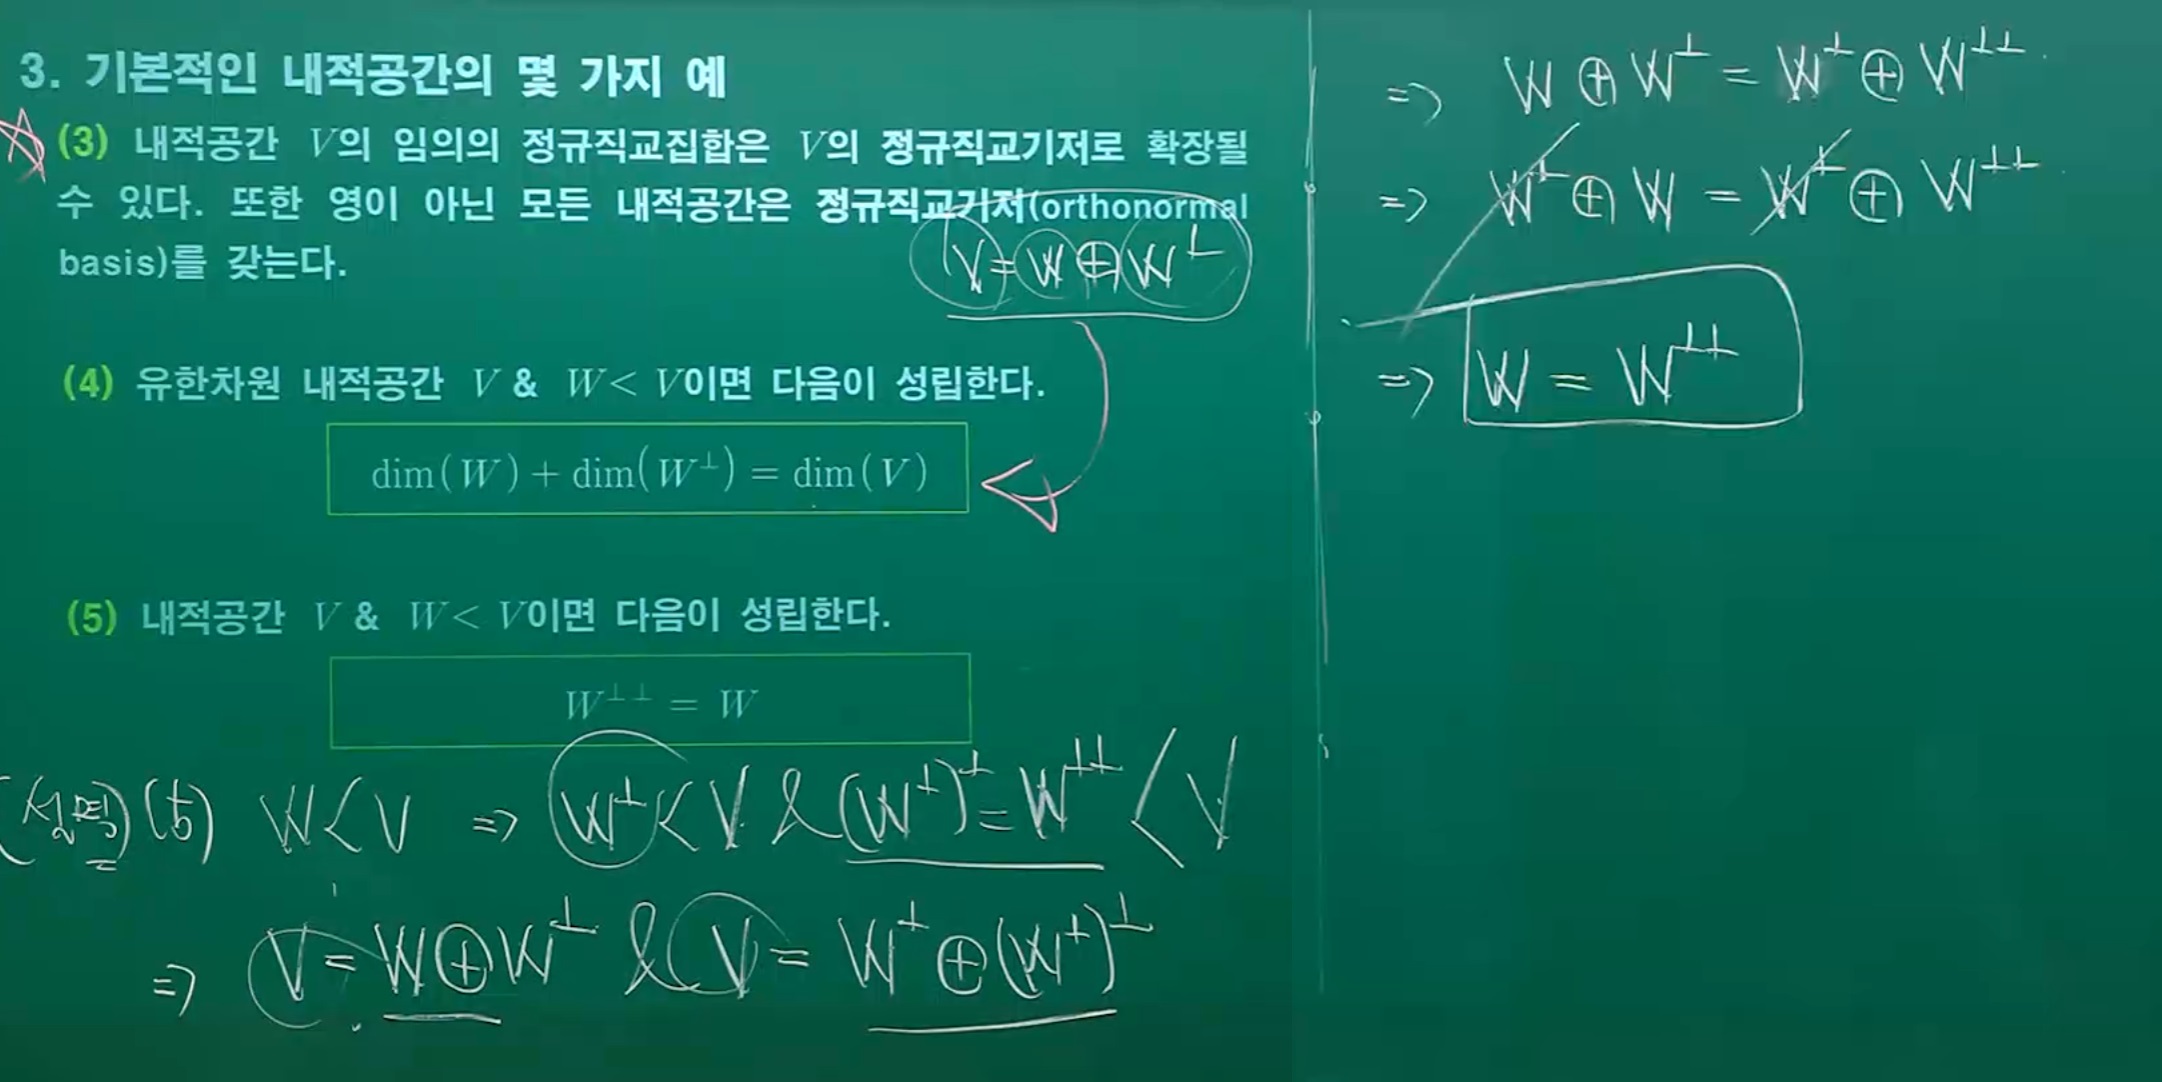 3. 기본적인 내적공간의 몇 가지 예
(3) 내적공간 V의 임의의 정규직교집합은 V의 정규직교기저로 확장될
수 있다. 또한 영이 아닌 모든 내적공간은 정규직교기저(orthonormal
basis)를 갖는다.
V = W ⊕ W^⊥
(4) 유한차원 내적공간 V & W < V이면 다음이 성립한다.
dim(W) + dim(W^⊥) = dim(V)
(5) 내적공간 V & W < V이면 다음이 성립한다.
W^⊥⊥ = W
(설명) (5) W < V ⇒ W^⊥ < V & (W^⊥)^⊥ = W^⊥⊥ < V
⇒ V = W ⊕ W^⊥ & V = W^⊥ ⊕ (W^⊥)^⊥
⇒ W ⊕ W^⊥ = W^⊥ ⊕ W^⊥⊥
⇒ W^⊥ ⊕ W = W^⊥ ⊕ W^⊥⊥
⇒ W = W^⊥⊥